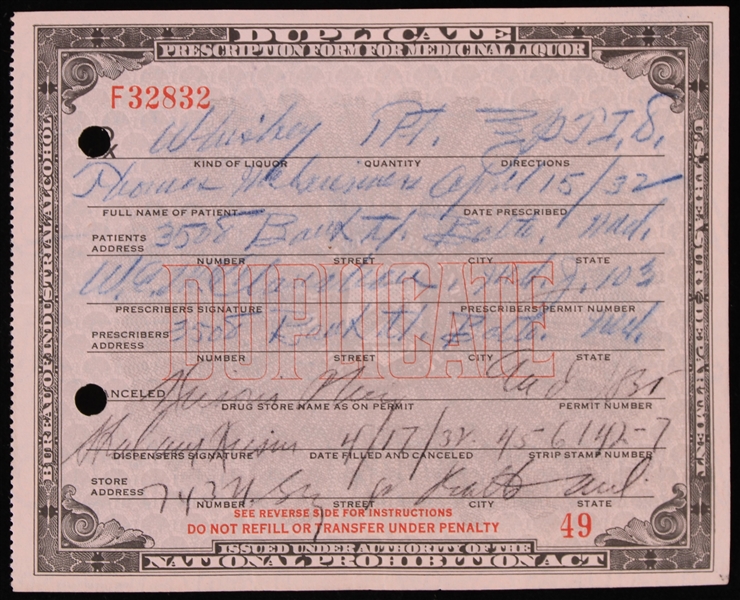 DUPLICATE
PRESCRIPTION FORM FOR MEDICINAL LIQUOR
F32832
Rx Whiskey Pt. I. S.
KIND OF LIQUOR QUANTITY DIRECTIONS
Thomas April 15/32
FULL NAME OF PATIENT DATE PRESCRIBED
PATIENTS ADDRESS 3508 Bank St. Balto. Md.
NUMBER STREET CITY STATE
W. Md. J. 103
PRESCRIBERS SIGNATURE PRESCRIBERS PERMIT NUMBER
PRESCRIBERS ADDRESS 3508 Bank St. Balto. Md.
NUMBER STREET CITY STATE
DUPLICATE
CANCELED
DRUG STORE NAME AS ON PERMIT PERMIT NUMBER
4/17/32 456142-7
DISPENSERS SIGNATURE DATE FILED AND CANCELED STRIP STAMP NUMBER
STORE ADDRESS 743
NUMBER STREET CITY STATE
SEE REVERSE SIDE FOR INSTRUCTIONS
DO NOT REFILL OR TRANSFER UNDER PENALTY
49
ISSUED UNDER AUTHORITY OF THE
NATIONAL PROHIBITION ACT
BUREAU OF INDUSTRIAL ALCOHOL